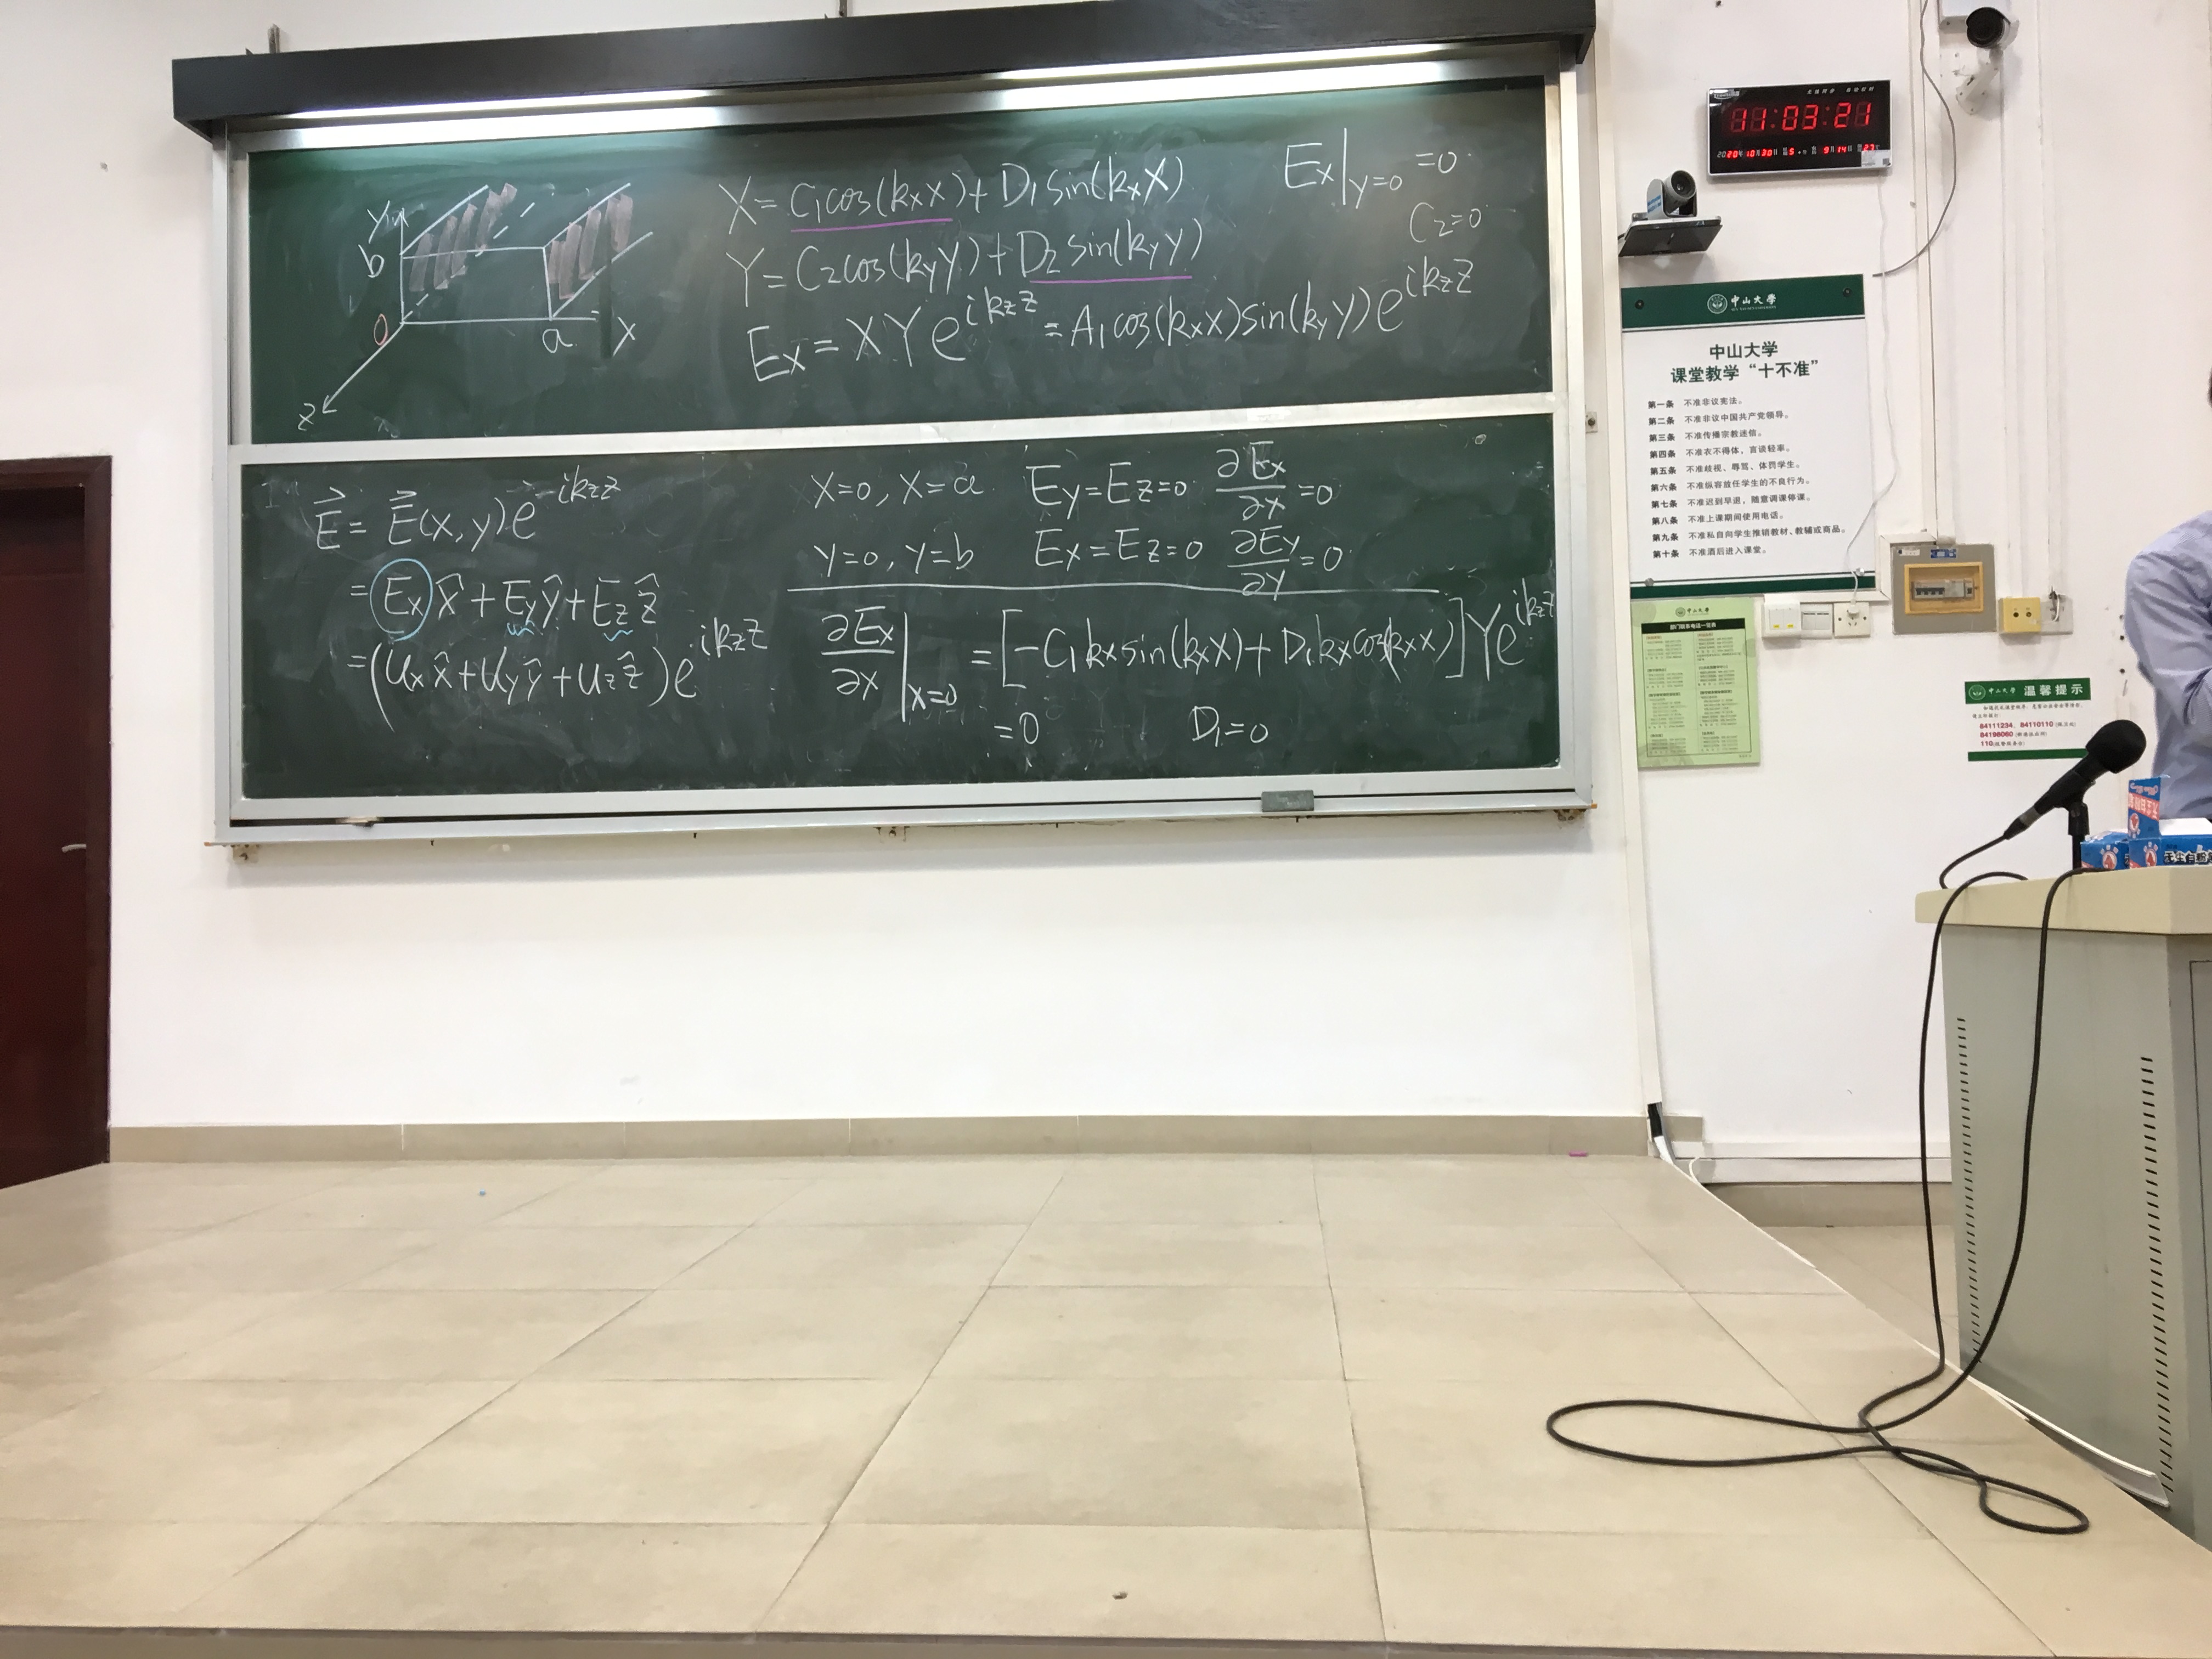 y
b
0
a
x
z
X = C₁cos(kₓx) + D₁sin(kₓx)
Y = C₂cos(k_y y) + D₂ sin(k_y y)
Eₓ = XYe^{ik_z z} = A₁cos(kₓx)sin(k_y y)e^{ik_z z}
Eₓ|_{y=0} = 0
C₂=0
E⃗ = E⃗(x,y)e^{ik_z z}
= Eₓx̂ + E_yŷ + E_zẑ
= (uₓx̂ + u_yŷ + u_zẑ)e^{ik_z z}
x=0, x=a E_y=E_z=0 ∂Eₓ/∂x=0
y=0, y=b Eₓ=E_z=0 ∂E_y/∂y=0
∂Eₓ/∂x|_{x=0} = [-C₁kₓsin(kₓx)+D₁kₓcos(kₓx)]Ye^{ik_z z}
=0 D₁=0
11:03:21
2020年10月30日 9月14日
中山大学
中山大学
课堂教学“十不准”
第一条 不准非议宪法。
第二条 不准非议中国共产党领导。
第三条 不准传播宗教迷信。
第四条 不准衣不得体，言谈轻率。
第五条 不准歧视、辱骂、体罚学生。
第六条 不准纵容放任学生的不良行为。
第七条 不准迟到早退，随意调课停课。
第八条 不准上课期间使用电话。
第九条 不准私自向学生推销教材、教辅或商品。
第十条 不准酒后进入课堂。
中山大学
部门联系电话一览表
中山大学 温馨提示
84111234、84110110
84198060
110
无尘白粉